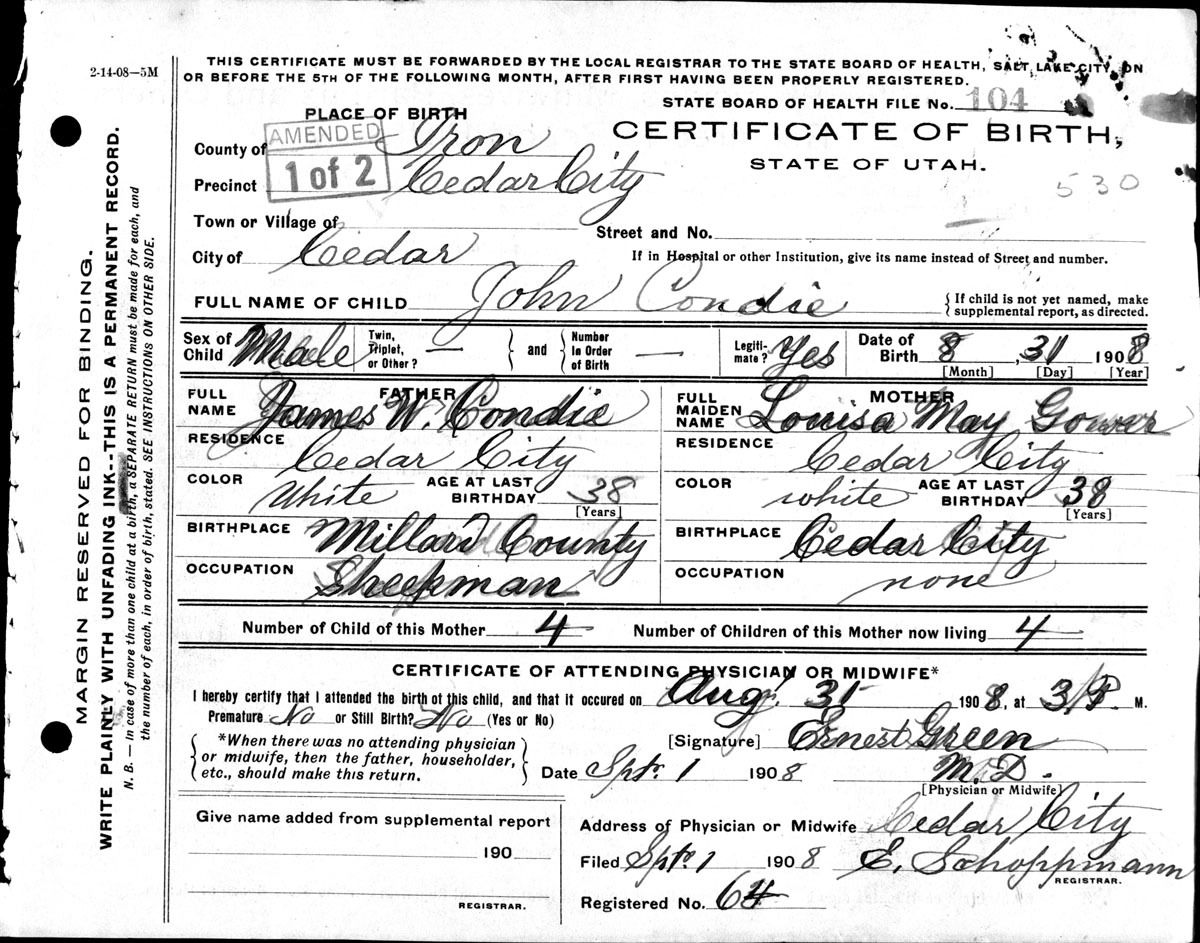 2-14-08—5M
THIS CERTIFICATE MUST BE FORWARDED BY THE LOCAL REGISTRAR TO THE STATE BOARD OF HEALTH, SALT LAKE CITY, ON
OR BEFORE THE 5TH OF THE FOLLOWING MONTH, AFTER FIRST HAVING BEEN PROPERLY REGISTERED.
STATE BOARD OF HEALTH FILE No. 104
PLACE OF BIRTH
CERTIFICATE OF BIRTH,
STATE OF UTAH.
AMENDED
1 of 2
530
County of Iron
Precinct Cedar City
Town or Village of
Street and No.
City of Cedar
If in Hospital or other Institution, give its name instead of Street and number.
FULL NAME OF CHILD John Condie
{ If child is not yet named, make
supplemental report, as directed.
Sex of Child Male
Twin, Triplet, or Other? —
} and {
Number In Order of Birth —
Legiti-mate? Yes
Date of Birth 8, 31 1908
[Month] [Day] [Year]
FATHER
FULL NAME James W. Condie
RESIDENCE Cedar City
COLOR White AGE AT LAST BIRTHDAY 38
[Years]
BIRTHPLACE Millard County
OCCUPATION Sheepman
MOTHER
FULL MAIDEN NAME Louisa May Gower
RESIDENCE Cedar City
COLOR white AGE AT LAST BIRTHDAY 38
[Years]
BIRTHPLACE Cedar City
OCCUPATION none
Number of Child of this Mother 4 Number of Children of this Mother now living 4
CERTIFICATE OF ATTENDING PHYSICIAN OR MIDWIFE*
I hereby certify that I attended the birth of this child, and that it occured on Aug. 31 1908, at 3 P M.
Premature No or Still Birth? No (Yes or No)
{ *When there was no attending physician
or midwife, then the father, householder,
etc., should make this return. }
[Signature] Ernest Green
Date Spt. 1 1908 M.D.
[Physician or Midwife]
Give name added from supplemental report
190
REGISTRAR.
Address of Physician or Midwife Cedar City
Filed Spt. 1 1908 E. Schoppmann
REGISTRAR.
Registered No. 64
MARGIN RESERVED FOR BINDING.
WRITE PLAINLY WITH UNFADING INK--THIS IS A PERMANENT RECORD.
N. B. — In case of more than one child at a birth, a SEPARATE RETURN must be made for each, and
the number of each, in order of birth, stated. SEE INSTRUCTIONS ON OTHER SIDE.